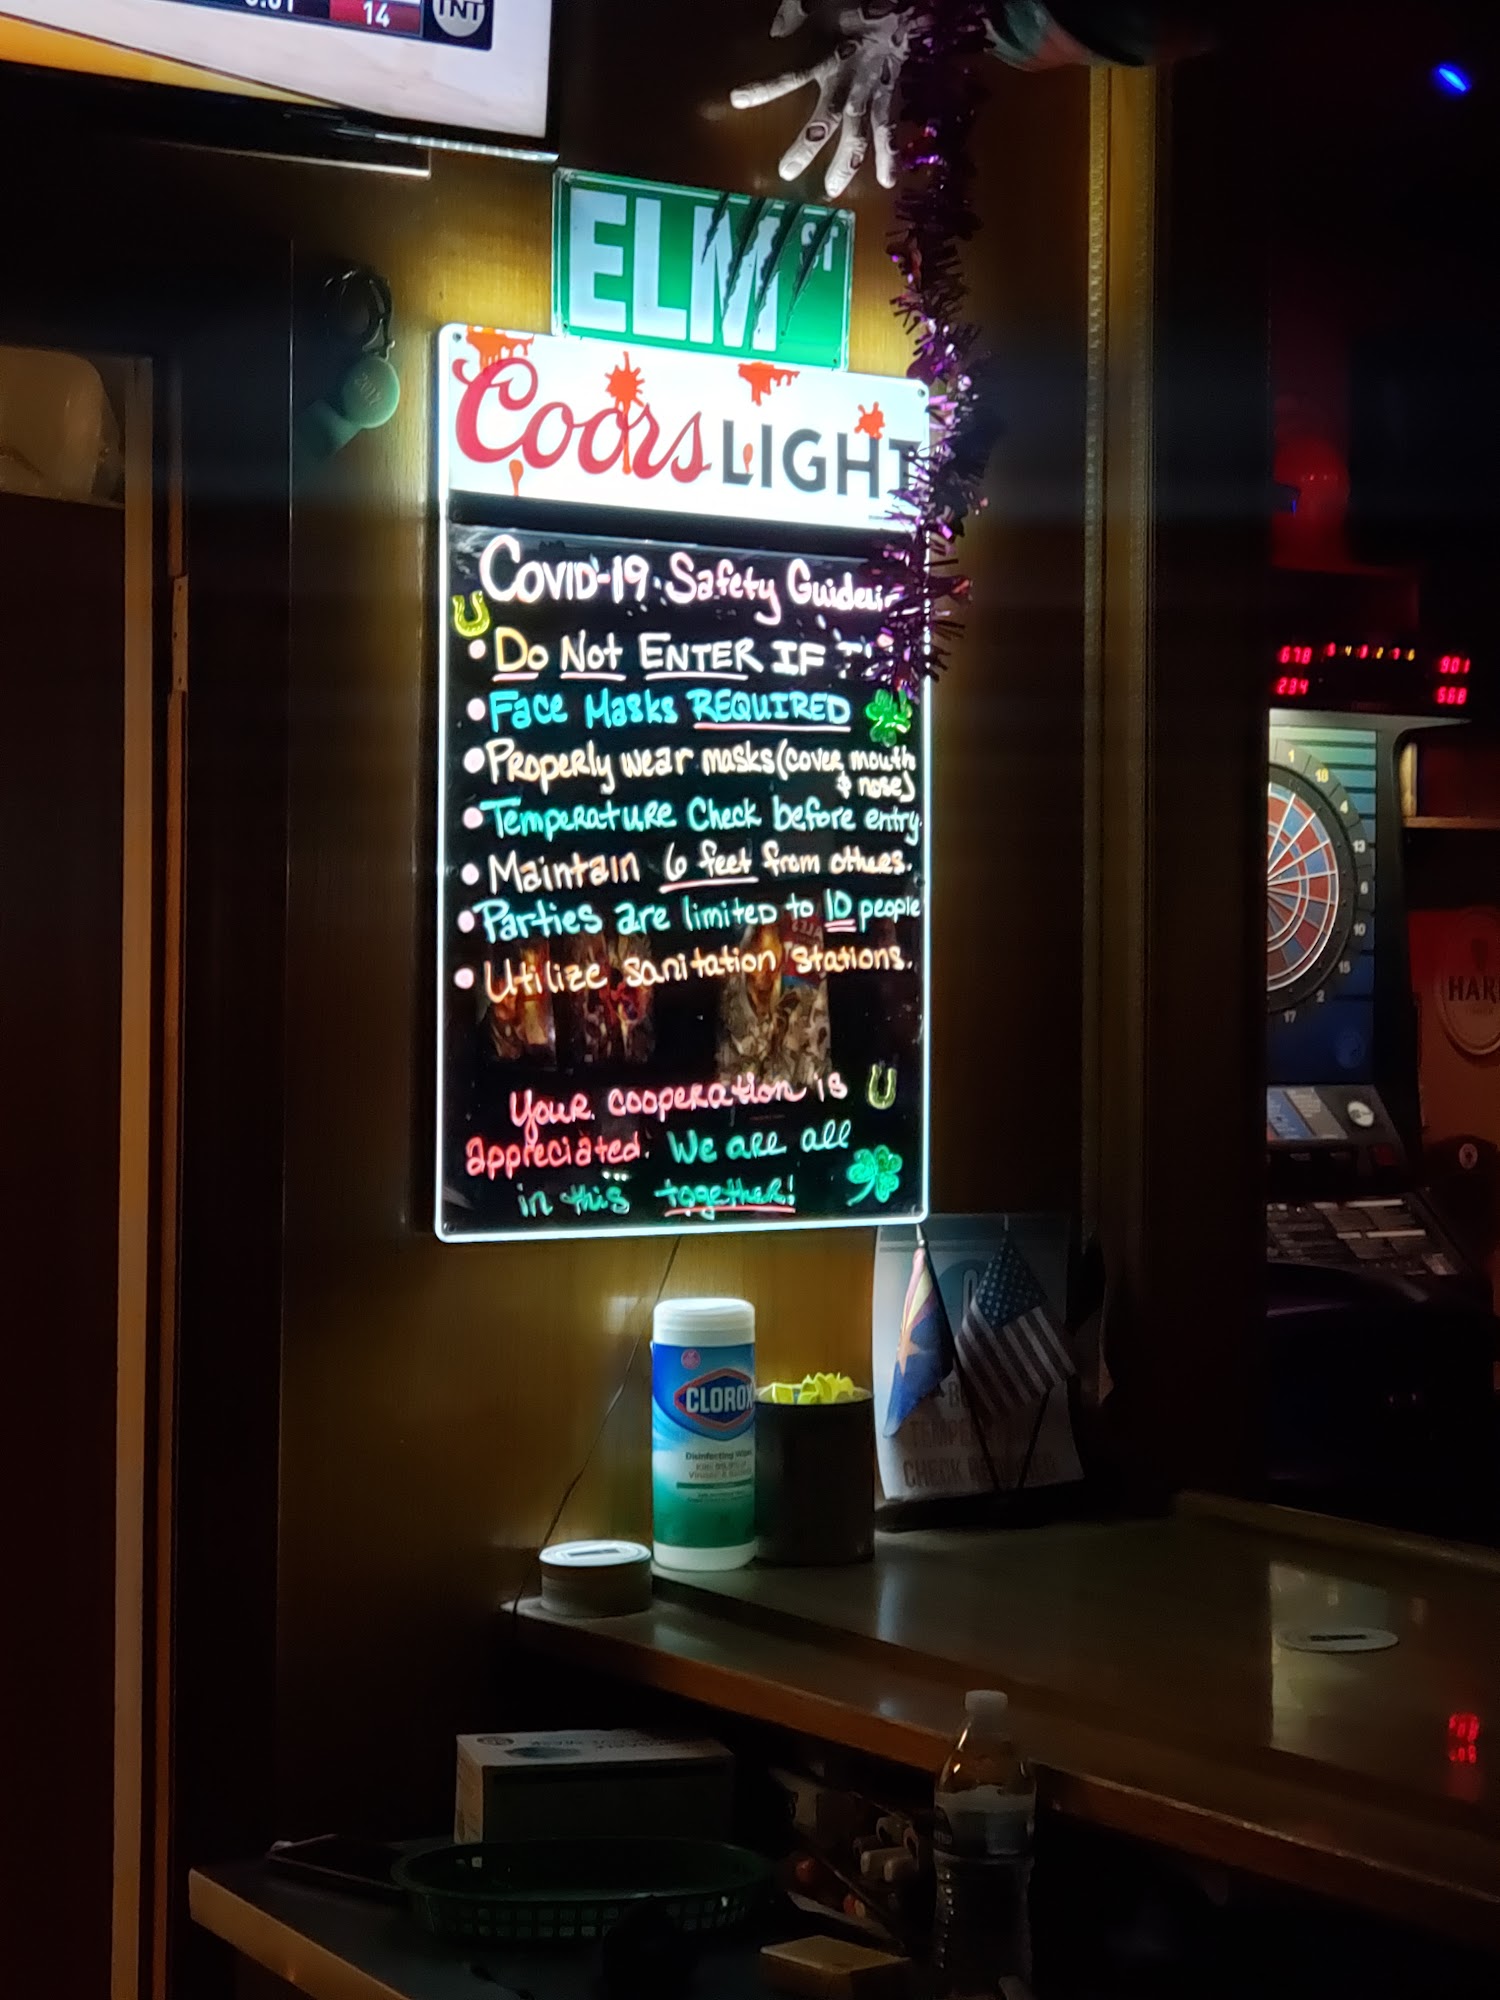 14
TNT
ELM ST
2017
Coors LIGHT
COVID-19 Safety
• Do Not ENTER IF
• Face Masks REQUIRED
• Properly wear masks (cover mouth
& nose)
• Temperature Check before entry.
• Maintain 6 feet from others.
• Parties are limited to 10 people
• Utilize sanitation stations.
Your cooperation is
appreciated. We are all
in this together!
678
901
234
568
1
18
4
13
6
10
15
2
17
HAR
CLOROX
Disinfecting
CHECK